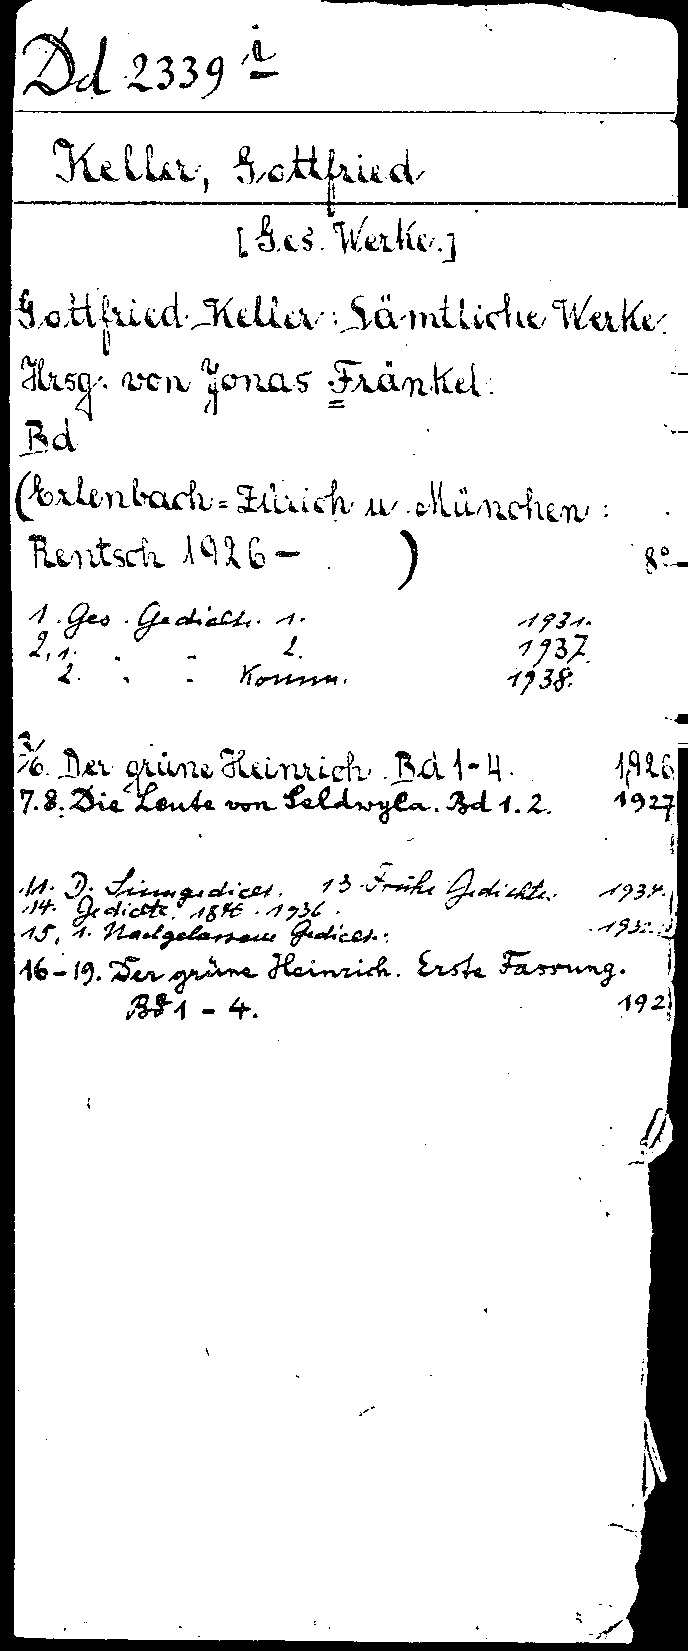 Dd 2339 i
Keller, Gottfried
[Ges. Werke.]
Gottfried Keller: Sämtliche Werke.
Hrsg. von Jonas Fränkel.
Bd
(Erlenbach=Zürich u. München:
Rentsch 1926- ) 8°
1. Ges. Gedichte. 1. 1931.
2,1. " " 2. 1937.
2. " " Komm. 1938.
3/6. Der grüne Heinrich. Bd 1-4. 1926
7.8. Die Leute von Seldwyla. Bd 1.2. 1927
11. D. Sinngedicht. 13 Frühe Gedichte.
14. Gedichte. 1846. 1936.
15, 1. Nachgelassene Gedichte.
16-19. Der grüne Heinrich. Erste Fassung.
Bd 1 - 4. 192